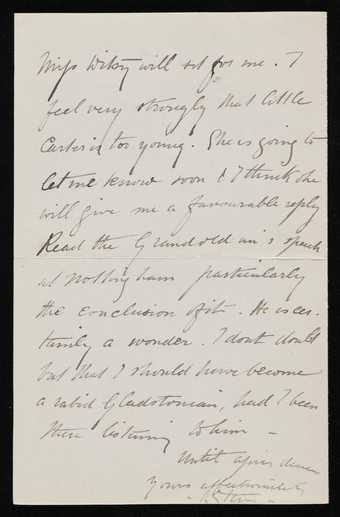 Miss Wiksy will sit for me. I
feel very strongly that little
Carter is too young. She is going to
let me know soon & I think she
will give me a favourable reply
Read the Grand old m's speech
at Nottingham particularly
the conclusion of it. He is cer-
tainly a wonder. I dont doubt
but that I should have become
a rabid Gladstonian, had I been
there listening to him –
Until
Yours affectionately